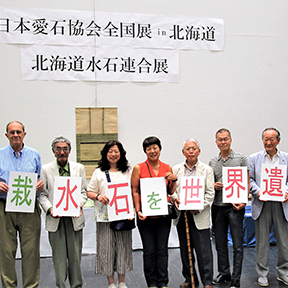 日本愛石協会全国展 in 北海道
北海道水石連合展
栽水石を世界遺